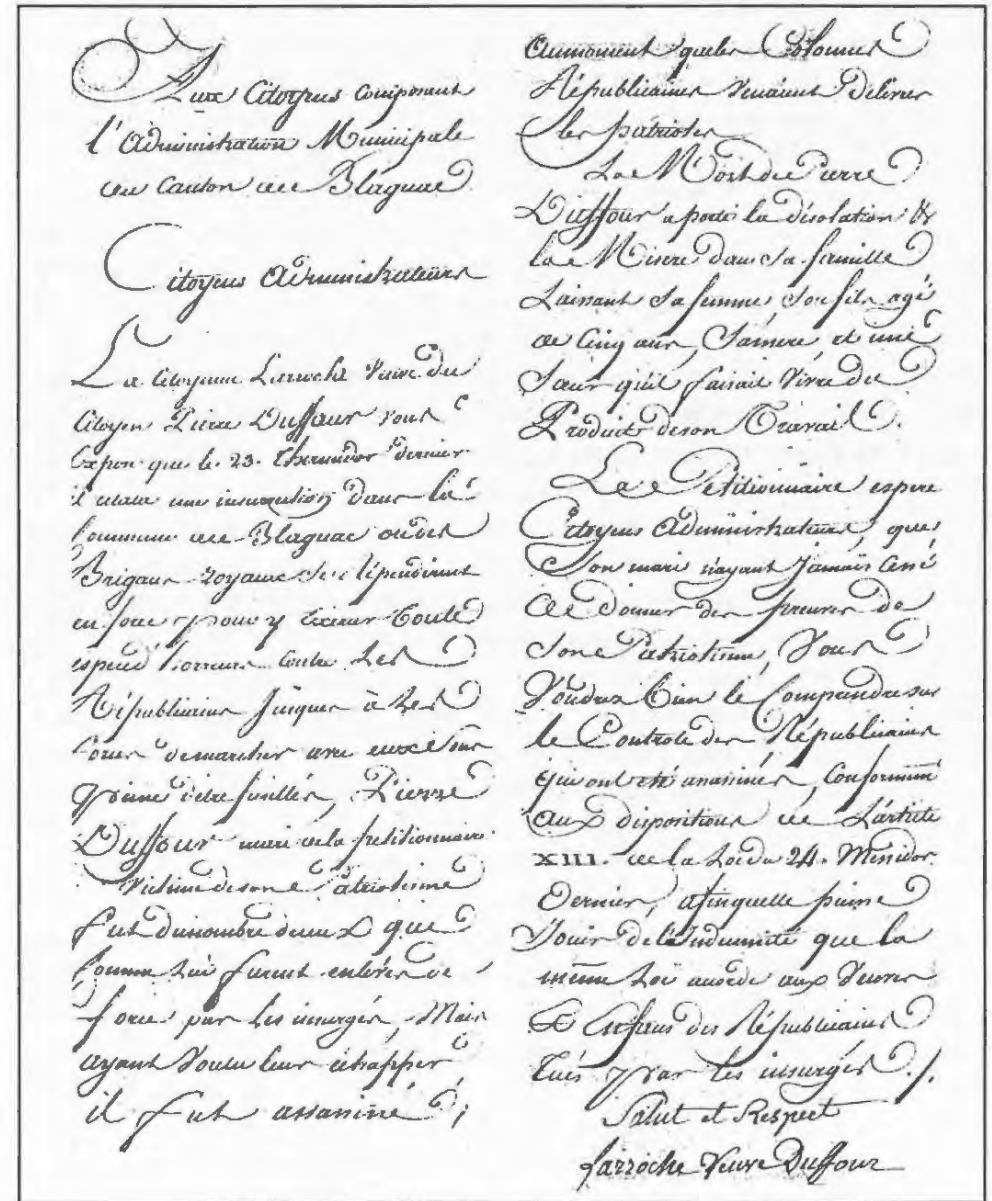 Aux Citoyens Composant
l'Administration Municipale
du Canton de Blagnac
Citoyens Administrateurs
La Citoyenne Laroche Veuve du
Citoyen Pierre Duffour vous
Expose que le 23. Thermidor dernier
il éclata une insurrection dans la
Commune de Blagnac où des
Brigans Royaux se répendirent
en force pour y Exercer toute
espece d'orreurs Contre Les
Républicains Jusques à Les
forcer de marcher avec eux sous
peine d'être fusillés, Pierre
Duffour mari de la petitionnaire
Victime de son Patriotisme
fut du nombre de ceux que
Comme Lui furent enlevés de
force par les insurgés, Mais
ayant Voulu leur échapper
il fut assassiné ;
Au moment que les Colonnes
Républicaines Venaient Délivrer
les patriotes
La Mort de Pierre
Duffour a porté la désolation &
la Misere dans sa famille
Laissant sa femme, son fils agé
de Cinq ans, Sa mere, et une
Sœur qu'il faisait Vivre du
Produit de son Travail.
La Petitionnaire espere
Citoyens Administrateurs, que
Son mari n'ayant Jamais Cessé
de Donner des preuves de
Son Patriotisme, Vous
Voudrez bien le Comprendre sur
le Controle des Républicains
qui ont été assassinés, Conformément
aux dispositions de L'article
XIII. de la Loi du 24. Messidor
Dernier, afin quelle puisse
Jouir de l'Indemnité que la
même Loi accorde aux Veuves
& Enfans des Républicains
Tués par les insurgés./.
Salut et Respect
Larroche Veuve Duffour